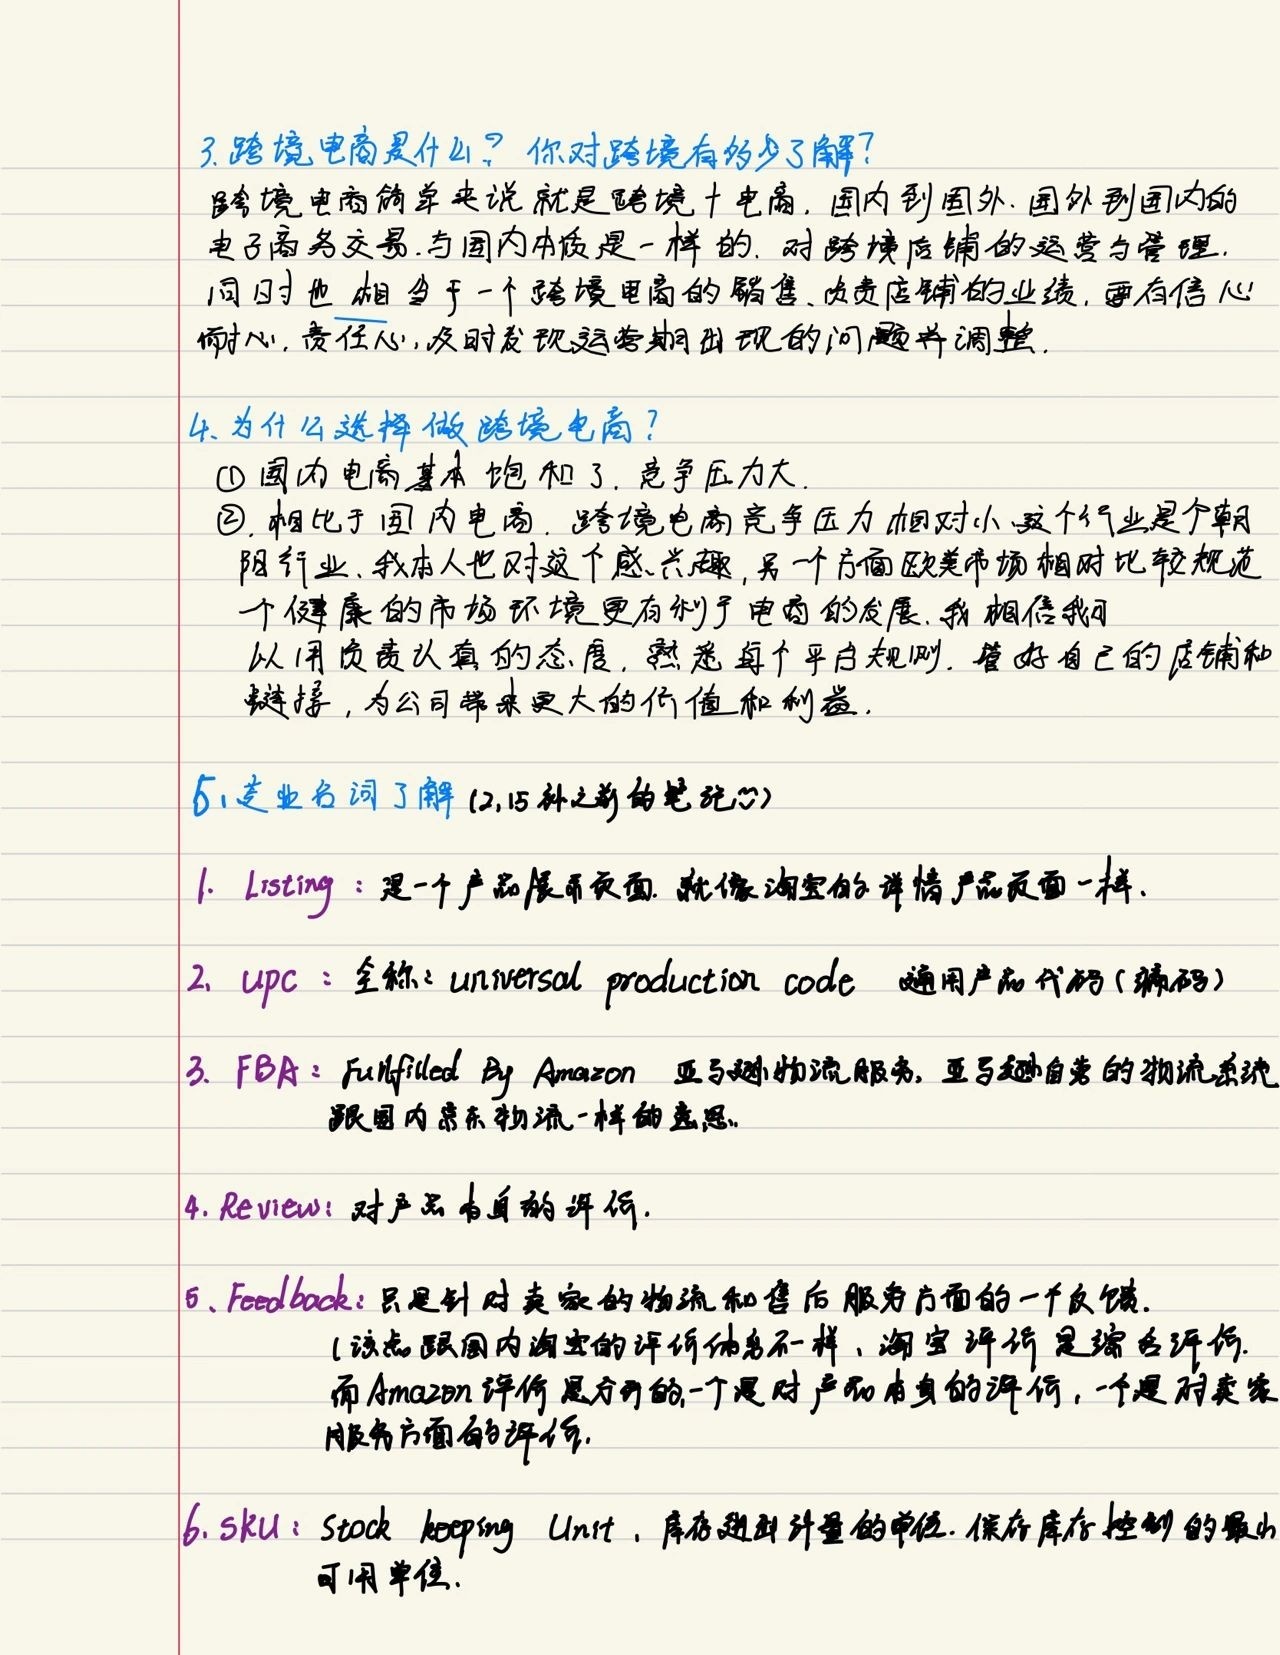 3.跨境电商是什么? 你对跨境有多少了解?
跨境电商简单来说就是跨境+电商,国内到国外、国外到国内的
电子商务交易.与国内本质是一样的.对跨境店铺的运营与管理.
同时也相当于一个跨境电商的销售、负责店铺的业绩,要有信心
耐心,责任心,及时发现运营期出现的问题并调整.
4.为什么选择做跨境电商?
①国内电商基本饱和了.竞争压力大.
②.相比于国内电商,跨境电商竞争压力相对小、这个行业是个朝
阳行业、我本人也对这个感兴趣,另一个方面欧美市场相对比较规范
个健康的市场环境更有利于电商的发展.我相信我可
以用负责认真的态度,熟悉每个平台规则.管好自己的店铺和
链接,为公司带来更大的价值和利益.
5、专业名词了解(2,15补之前的笔记)
1. Listing:是一个产品展示页面.就像淘宝的详情产品页面一样.
2. UPC:全称:universal production code 通用产品代码(编码)
3. FBA:Fulfilled By Amazon 亚马逊物流服务,亚马逊自营的物流系统
跟国内京东物流一样的意思.
4. Review:对产品本身的评价.
5、Feedback:只是针对卖家的物流和售后服务方面的一个反馈.
(该点跟国内淘宝的评价体系不一样、淘宝评价是综合评价.
而Amazon评价是分开的,一个是对产品本身的评价,一个是对卖家
服务方面的评价.
6.SKU:Stock keeping Unit,库存进出计量的单位.保存库存控制的最小
可用单位.